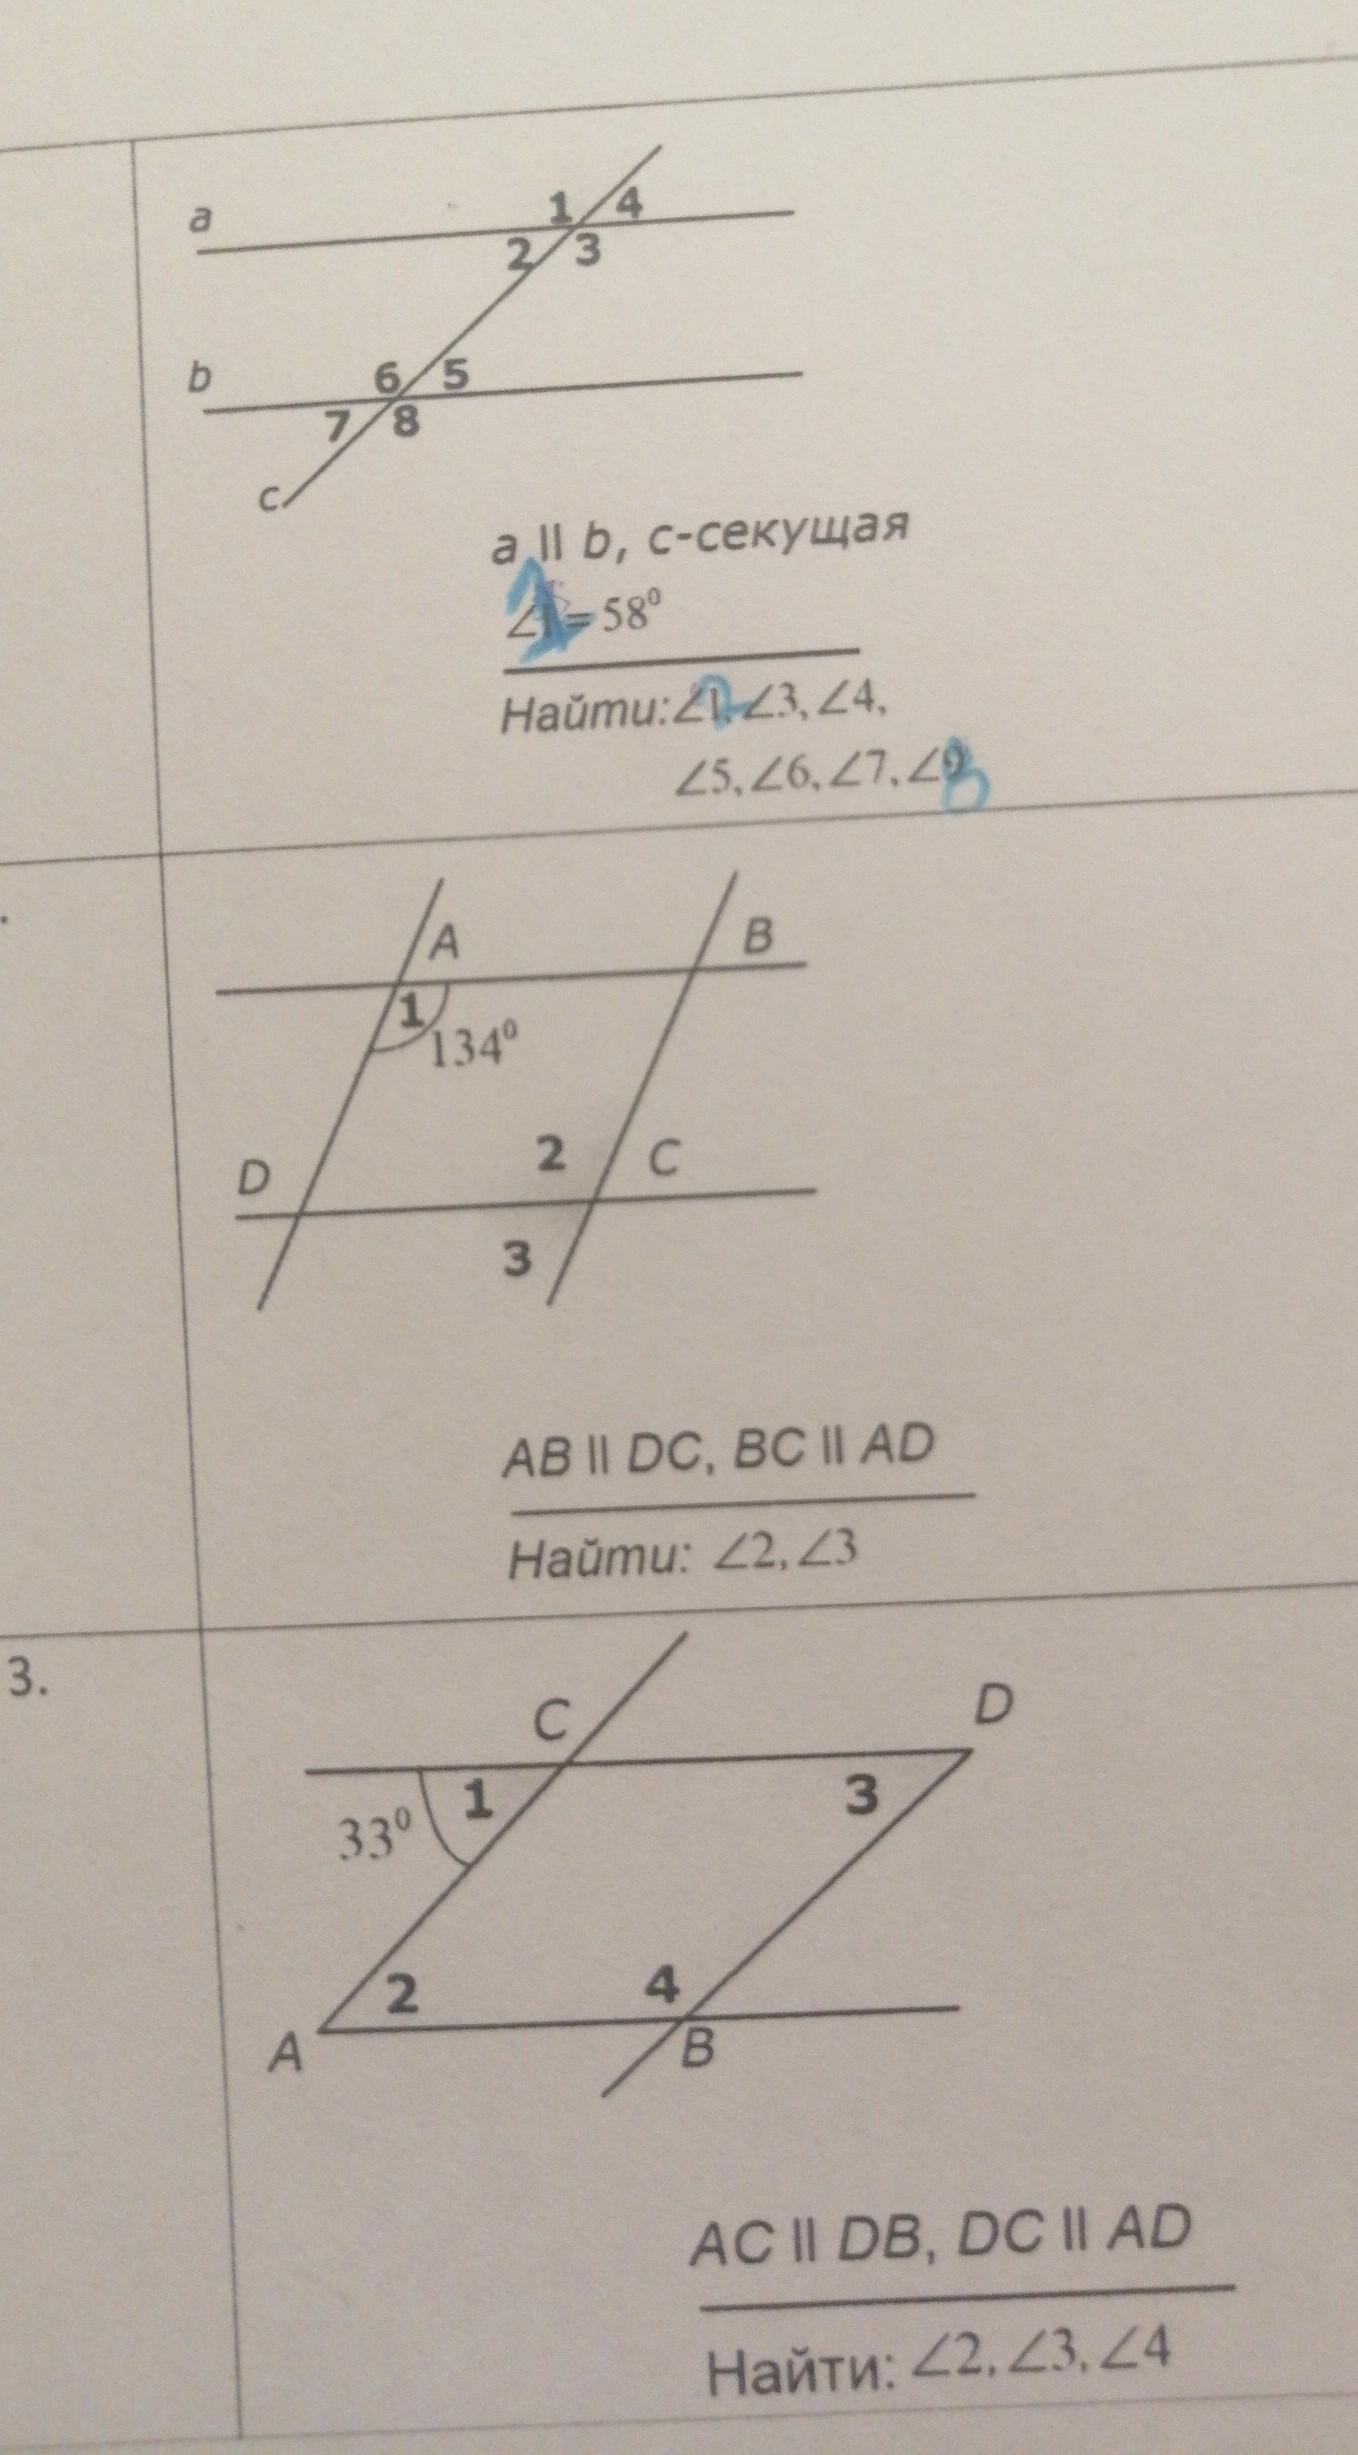 a
1 4
2 3
b
6 5
7 8
c
a || b, c-секущая
∠1 = 58⁰
Найти: ∠2, ∠3, ∠4,
∠5, ∠6, ∠7, ∠8
.
A B
1
134⁰
2 C
D
3
AB || DC, BC || AD
Найти: ∠2, ∠3
3.
C D
1 3
33⁰
2 4
A B
AC || DB, DC || AD
Найти: ∠2, ∠3, ∠4